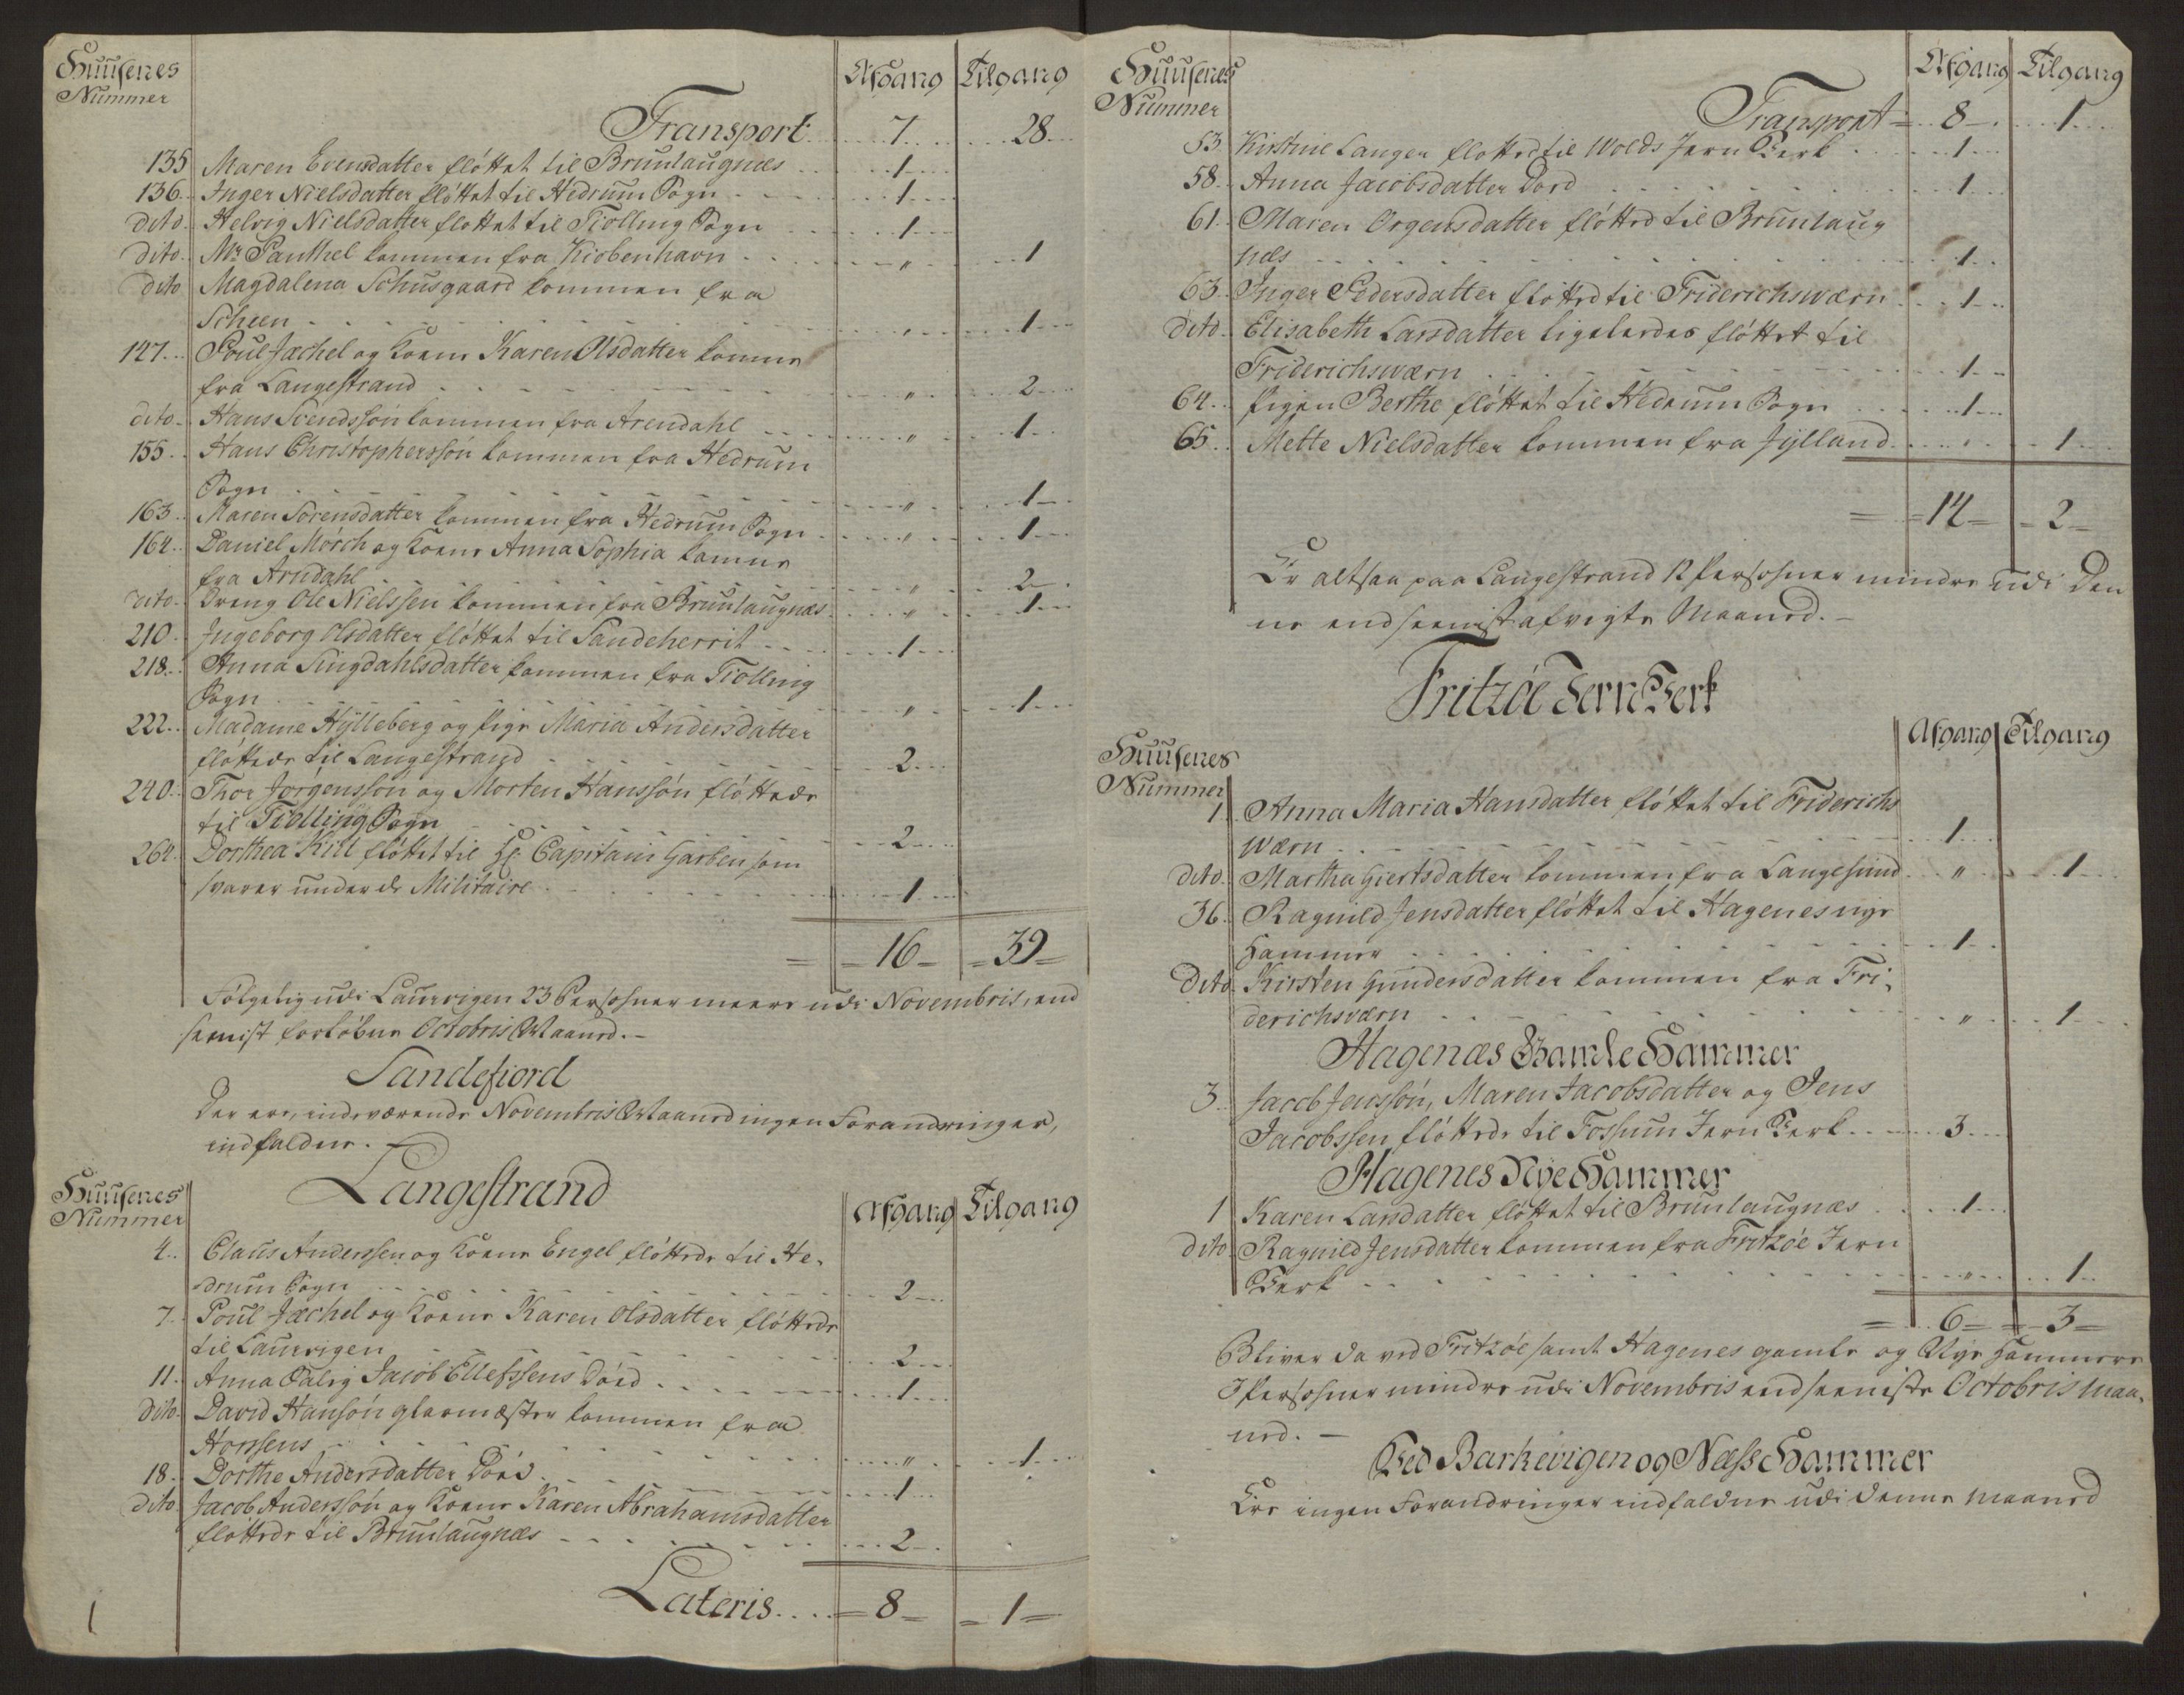 Huusenes
Nummer
Afgang Tilgang
Transport 7 28
135 Maren Evensdatter fløttet til Brunlaugnæs 1
136 Inger Nielsdatter fløttet til Hedrum Sogn 1
dito Helvig Nielsdatter fløttet til Tiolling Sogn 1
dito Mr Panthel kommen fra Kiøbenhavn " 1
dito Magdalena Schusgaard kommen fra
Scheen " 1
147 Poul Jæchel og Kone Karen Olsdatter komne
fra Langestrand " 2
dito Hans Svendssøn kommen fra Arendahl " 1
155 Hans Christopherssøn kommen fra Hedrum
Sogn " 1
163 Maren Sørensdatter kommen fra Hedrum Sogn " 1
164 Daniel Mørch og Kone Anna Sophia komne
fra Arndahl " 2
dito Dreng Ole Nielssen kommen fra Brunlaugnæs " 1
210 Ingeborg Olsdatter fløttet til Sandeherrit 1
218 Anna Singdahlsdatter kommen fra Tiølling
Sogn " 1
222 Madame Hÿlleberg og Pige Maria Andersdatter
fløttede til Langestrand 2
240 Thor Jørgenssøn og Morten Hanssøn fløttede
til Tiølling Sogn 2
264 Dorthea Kiil fløttet til Hr Capitain Garben som
svarer under de Militaire 1
= 16 = 39 =
Følgelig udi Laurvigen 23 Persohner meere udi Novembris, end
sænist forløbne Octobris Maaned.
Sandefiord
Der ere indeværende Novembris Maaned ingen Forandringer,
indfalden.
Langestrand
Huusenes
Nummer
Afgang Tilgang
4 Claus Anderssen og Kone Engel fløttede til He-
drum Sogn 2
7 Poul Jæchel og Kone Karen Olsdatter fløttede
til Laurvigen 2
11 Anna Salig Jacob Ellefssens død 1
dito David Hansøn glarmæster kommen fra
Horssens " 1
18 Dorthe Andersdatter død 1
dito Jacob Anderssøn og Kone Karen Abrahamsdatter
fløttede til Brunlaugnæs 2
Lateris = 8 = 1 =
Huusenes
Nummer
Afgang Tilgang
Transport 8 1
53 Kirstine Langer flotted til Wolds Jern Verk 1
58 Anna Jacobsdatter Død 1
61 Maren Orgensdatter fløtted til Brunlaug
næs 1
63 Inger Pedersdatter fløtted til Friderichswærn 1
dito Elisabeth Larsdatter ligeledes fløttet til
Friderichswærn 1
64 Pigen Berthe fløttet til Hedrum Sogn 1
65 Mette Nielsdatter kommen fra Jylland " 1
= 14 = 2 =
Er altsaa paa Langestrand 12 Persohner mindre udi Den
ne end seenist afvigte Maaned.
Fritzøe Jern Verk
Huusenes
Nummer
Afgang Tilgang
1 Anna Maria Hansdatter fløttet til Friderichs
wærn 1
dito Martha Giertsdatter kommen fra Langesund " 1
36 Ragnild Jensdatter fløttet til Hagenes nye
Hammer 1
dito Kirsten Gundersdatter kommen fra Fri-
derichsværn " 1
Hagenæs Gamle Hammer
3 Jacob Jenssøn, Maren Jacobsdatter og Jens
Jacobssen fløttede til Fossum Jern Verk 3
Hagenes Nye Hammer
1 Karen Larsdatter fløttet til Brunlaugnæs 1
dito Ragnild Jensdatter kommen fra Fritzøe Jern
Verk " 1
= 6 = 3 =
Bliver da ved Fritzøe samt Hagenes gamle og Nye Hammere
3 Persohner mindre udi Novembris end seeniste Octobris Maa-
ned.
Ved Barkevigen og Næss Hammer
Ere ingen Forandringer indfaldne udi denne Maaned